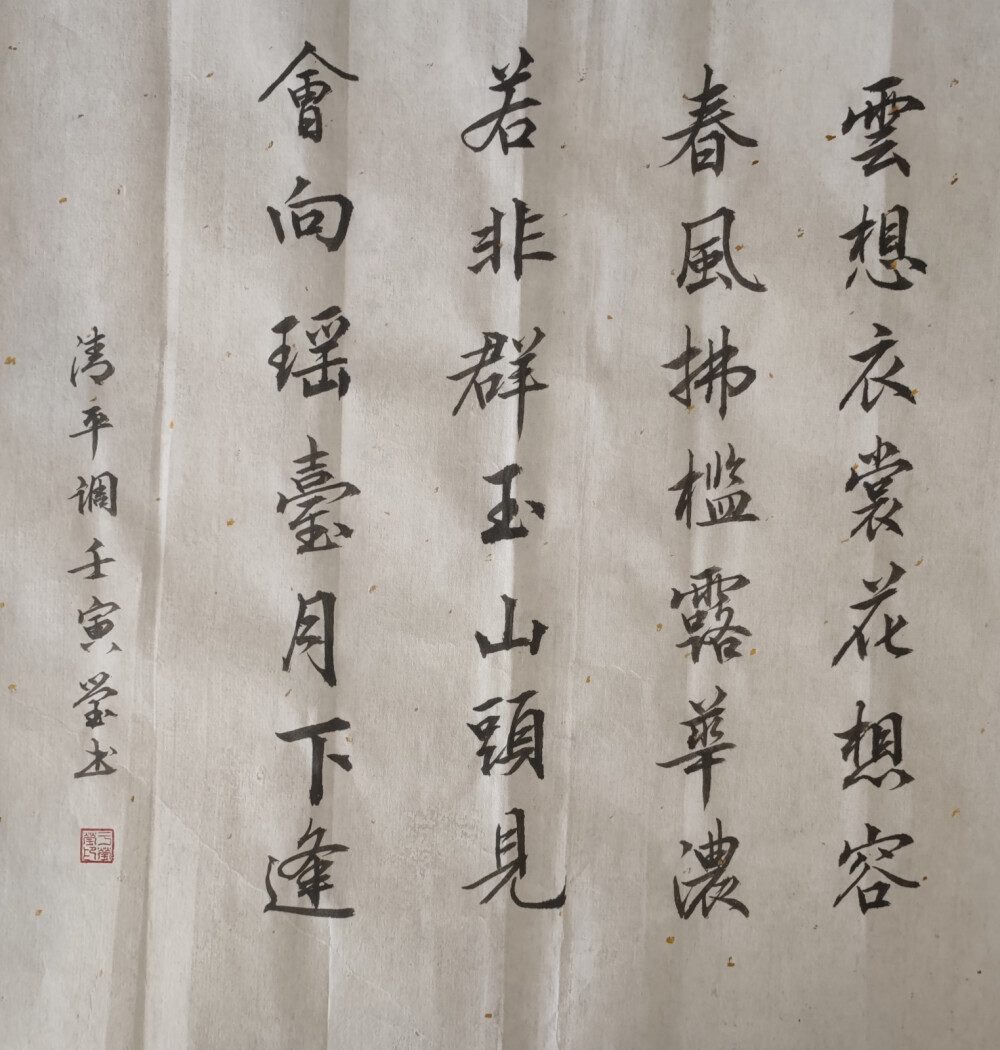 雲想衣裳花想容
春風拂檻露華濃
若非群玉山頭見
會向瑶臺月下逢
清平调壬寅莹书